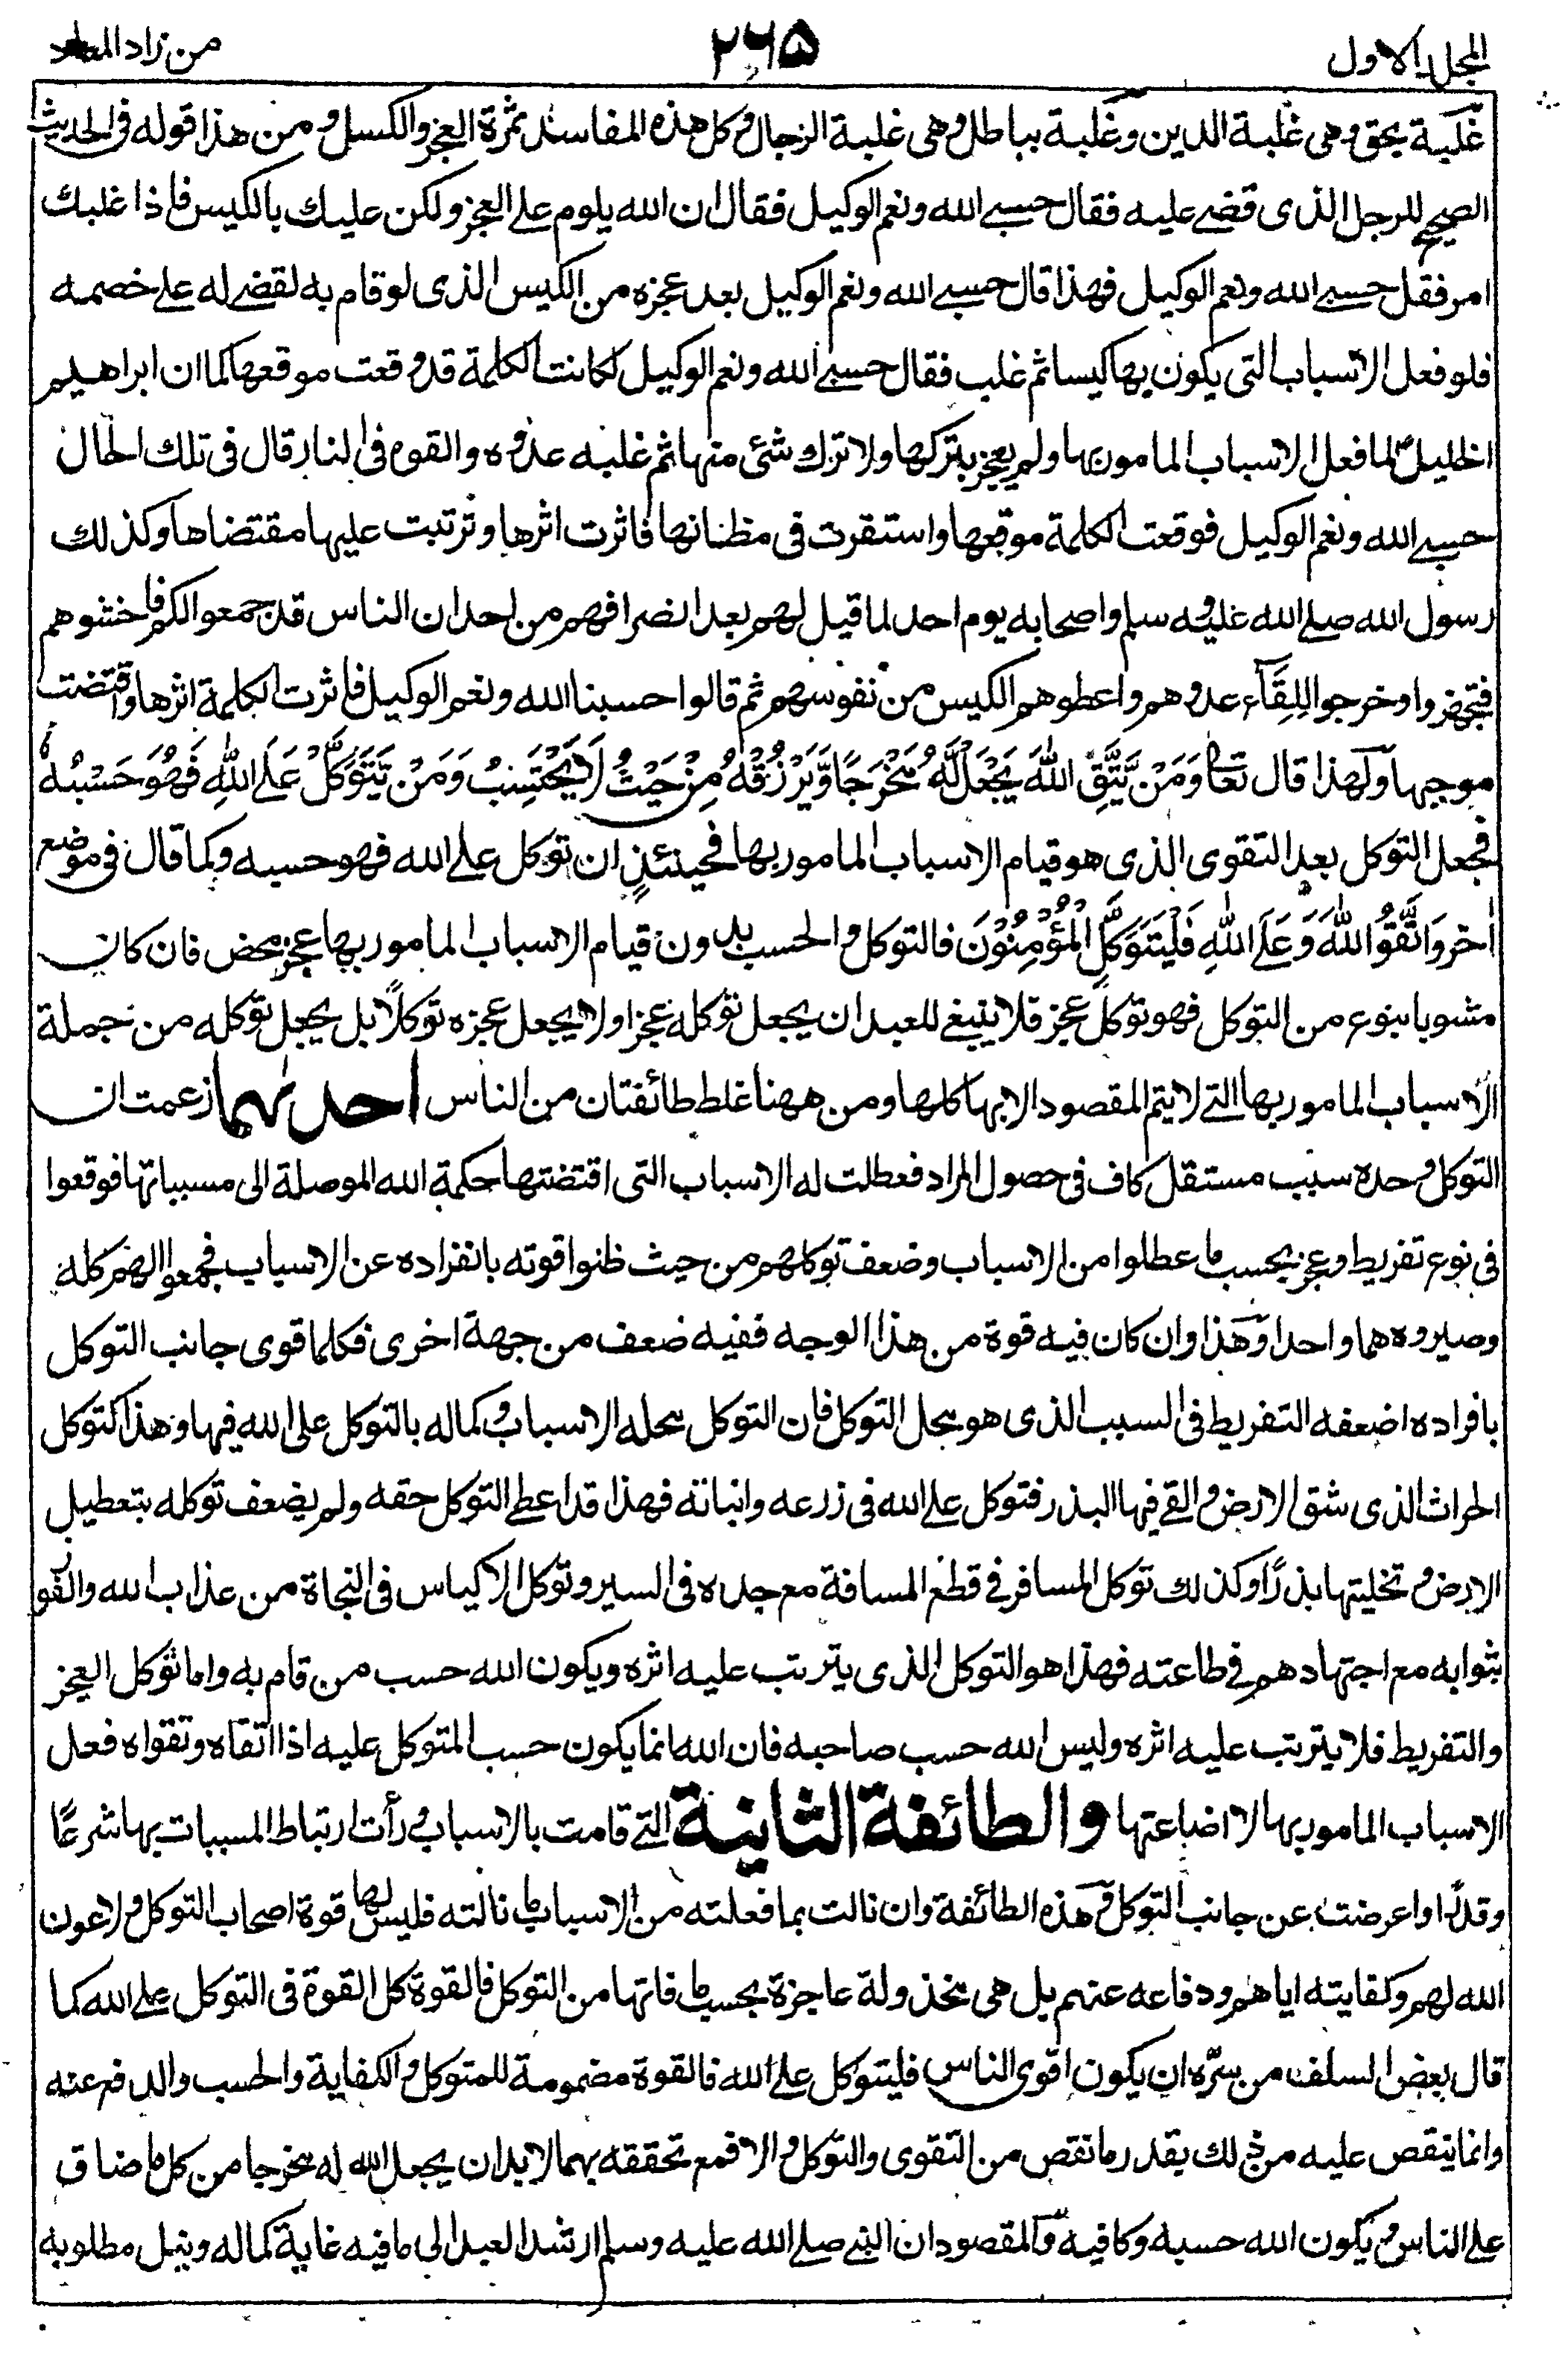 المجلد الاول
۲۶۵
من زاد المعاد
غلبة بحق وهى غلبة الدين وغلبة بباطل وهى غلبة الرجال وكل هذه المفاسد ثمرة العجز والكسل ومن هذا قوله فى الحديث
الصحيح للرجل الذى قضے عليه فقال حسبے الله ونعم الوكيل فقال ان الله يلوم علے العجز ولكن عليك بالكيس فاذا غلبك
امر فقل حسبے الله ونعم الوكيل فهذا قال حسبے الله ونعم الوكيل بعد عجزه من الكيس الذى لو قام به لقضے له علے خصمه
فلو فعل الاسباب التى يكون بها كيسا ثم غلب فقال حسبے الله ونعم الوكيل لكانت الكلمة قد وقعت موقعها كما ان ابراهيم
الخليل لما فعل الاسباب المامور بها ولم يعجز بتركها ولا ترك شئ منها ثم غلبه عدوه والقوه فى النار قال فى تلك الحال
حسبے الله ونعم الوكيل فوقعت الكلمة موقعها واستقرت فى مظنانها فاثرت اثرها وترتبت عليها مقتضاها وكذلك
رسول الله صلے الله عليه وسلم واصحابه يوم احد لما قيل لهم بعد انصرافهم من احد ان الناس قد جمعوا لكم فاخشوهم
فتجهزوا وخرجوا للِقَآء عدوهم واعطوهم الكيس من نفوسهم ثم قالوا حسبنا الله ونعم الوكيل فاثرت الكلمة اثرها واقتضت
موجبها ولهذا قال تعالى وَمَنْ يَّتَّقِ اللّٰهَ يَجْعَلْ لَّهٗ مَخْرَجًا وَّيَرْزُقْهُ مِنْ حَيْثُ لَا يَحْتَسِبُ وَمَنْ يَّتَوَكَّلْ عَلَى اللّٰهِ فَهُوَ حَسْبُهٗ
فجعل التوكل بعد التقوى الذى هو قيام الاسباب المامور بها فحينئذٍ ان توكل علے الله فهو حسبه وكما قال فى موضع
اٰخر وَاتَّقُوا اللّٰهَ وَعَلَى اللّٰهِ فَلْيَتَوَكَّلِ الْمُؤْمِنُوْنَ فالتوكل والحسب بدون قيام الاسباب المامور بها عجز محض فان كان
مشوبا بنوع من التوكل فهو توكل عجز فلا ينبغے للعبد ان يجعل توكله عجزا ولا يجعل عجزه توكلًا بل يجعل توكله من جملة
الاسباب المامور بها التے لا يتم المقصود الا بها كلها ومن ههنا غلط طائفتان من الناس احدٰىهما زعمت ان
التوكل وحده سبب مستقل كاف فى حصول المراد فعطلت له الاسباب التى اقتضتها حكمة الله الموصلة الى مسبباتها فوقعوا
فى نوع تفريط وعجز بحسب ما عطلوا من الاسباب وضعف توكلهم من حيث ظنوا قوته بانفراده عن الاسباب فجمعوا الهم كله
وصيروه هما واحدا وهذا وان كان فيه قوة من هذا الوجه ففيه ضعف من جهة اخرى فكلما قوى جانب التوكل
بافراده اضعفه التفريط فى السبب الذى هو محل التوكل فان التوكل محله الاسباب وكماله بالتوكل على الله فيها وهذا كتوكل
الحراث الذى شق الارض والقے فيها البذر فتوكل علے الله فى زرعه وانباته فهذا قد اعطے التوكل حقه ولم يضعف توكله بتعطيل
الارض وتخليتها بذرًا وكذلك توكل المسافر فے قطع المسافة مع جده فى السير وتوكل الاكياس فى النجاة من عذاب الله والفو
بثوابه مع اجتهادهم فے طاعته فهذا هو التوكل الذى يترتب عليه اثره ويكون الله حسب من قام به واما توكل العجز
والتفريط فلا يترتب عليه اثره وليس الله حسب صاحبه فان الله انما يكون حسب المتوكل عليه اذا اتقاه وتقواه فعل
الاسباب المامور بها لا اضاعتها والطائفة الثانية التے قامت بالاسباب ورأت ارتباط المسببات بها شرعًا
وقدرًا واعرضت عن جانب التوكل وهذه الطائفة وان نالت بما فعلته من الاسباب ما نالته فليس لها قوة اصحاب التوكل ولا عون
الله لهم وكفايته اياهم ودفاعه عنهم بل هى مخذولة عاجزة بحسب ما فاتها من التوكل فالقوة كل القوة فى التوكل علے الله كما
قال بعض السلف من سرّه ان يكون اقوى الناس فليتوكل علے الله فالقوة مضمومة للمتوكل والكفاية والحسب والدفع عنه
وانما ينقص عليه من ذلك بقدر ما نقص من التقوى والتوكل والا فمع تحققه بهما لا بد ان يجعل الله له مخرجا من كل ما ضاق
علے الناس ويكون الله حسبه وكافيه والمقصود ان النبے صلے الله عليه وسلم ارشد العبد الى ما فيه غاية كماله ونيل مطلوبه